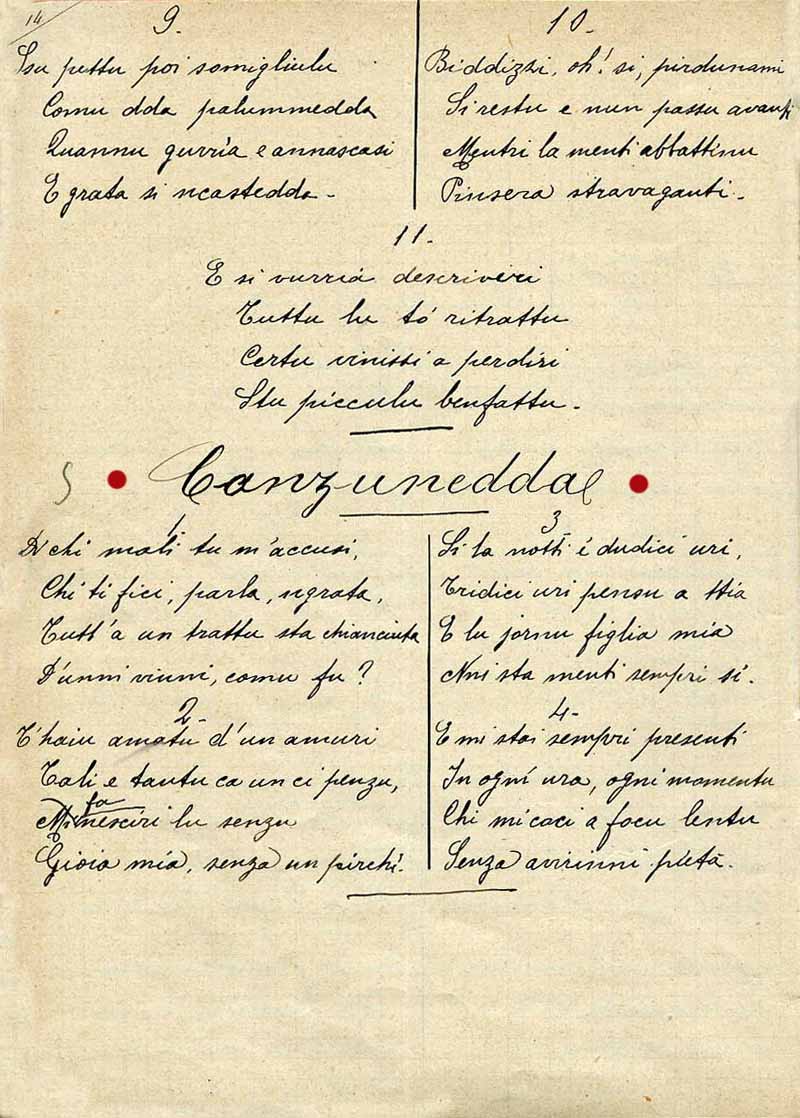 14
9.
Ssu pettu poi somigliulu
Comu dda palummedda
Quannu gurrìa e annascasi
E grata si ncastedda.
10.
Biddizzi, oh! si, pirdunami
Si restu e nun passu avanti
Mentri la menti abbattinu
Pinsera stravaganti.
11.
E si vurria descriveri
Tuttu lu tó ritrattu
Certu vinissi a perdiri
Stu picculu benfattu.
Canzunedda
1
Di chi mali tu m'accusi,
Chi ti fici, parla, ngrata,
Tutt'a un trattu sta chianciuta
D'unni vinni, comu fu?
2.
T'haiu amatu d'un amuri
Tali e tantu ca un ci penzu,
fa nesciri lu senzu
Gioia mia, senza un pirchì.
3.
Si la notti è dudici uri,
Tridici uri pensu a ttia
E lu jornu figlia mia
Nni sta menti sempri si.
4.
E mi stai sempri presenti
In ogni ura, ogni momentu
Chi mi coci a focu lentu
Senza avirinni pietà.